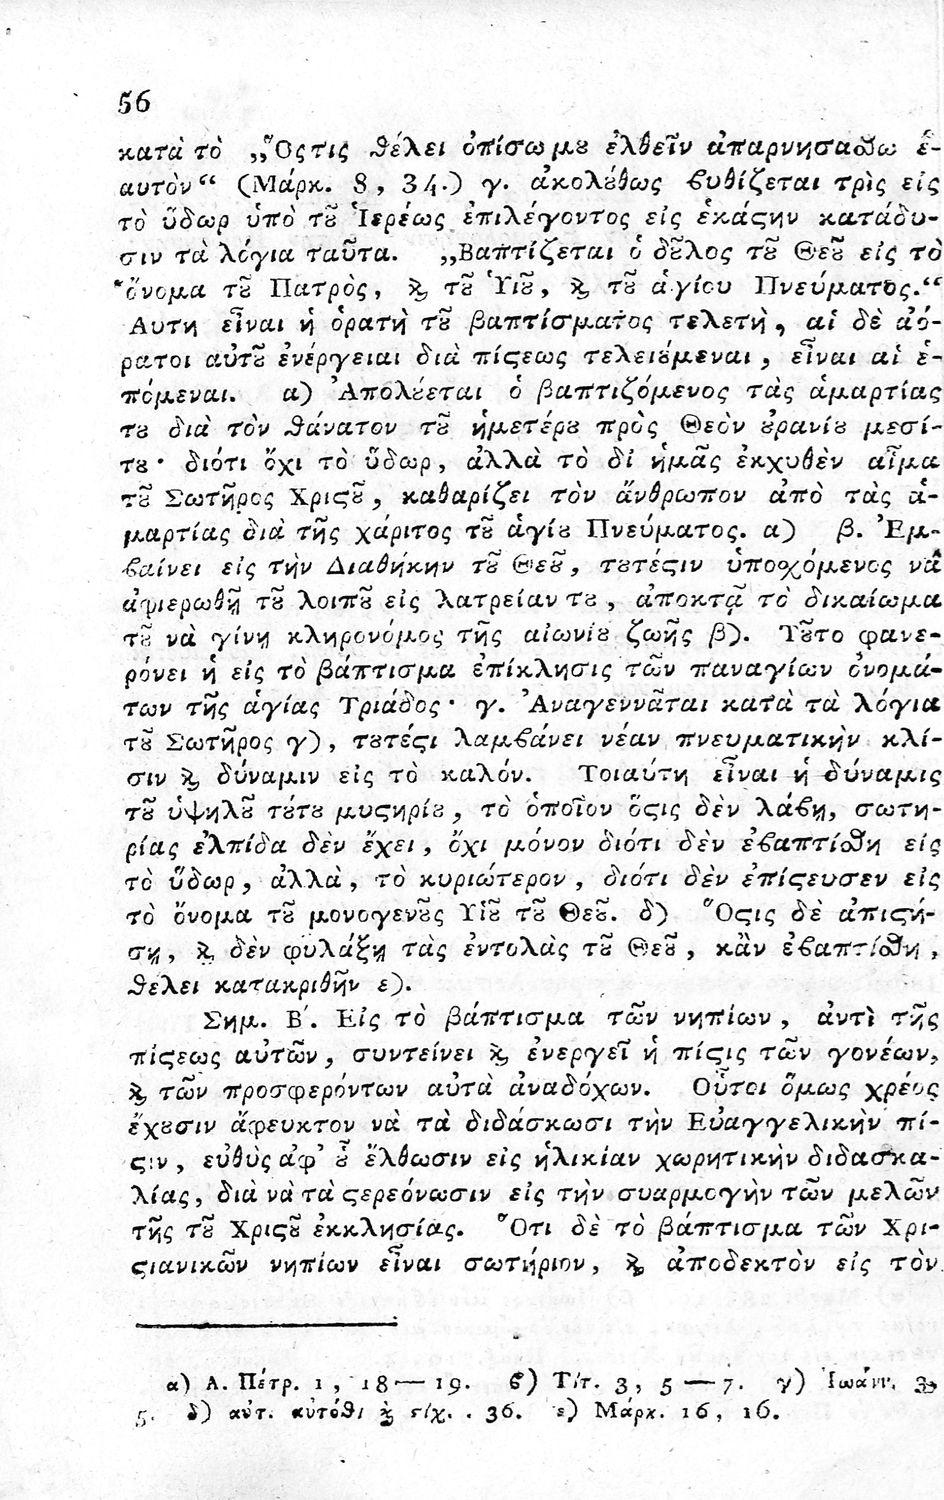 56
κατὰ τὸ „Ὅςτις θέλει ὀπίσω μȣ ἐλθεῖν ἀπαρνησάσθω ἑ-
αυτὸν“ (Μάρκ. 8, 34.) γ. ἀκολȣ́θως ϐυθίζεται τρὶς εἰς
τὸ ὕδωρ ὑπὸ τȣ͂ Ἱερέως ἐπιλέγοντος εἰς ἑκάϛην κατάδυ-
σιν τὰ λόγια ταῦτα. „Βαπτίζεται ὁ δȣ͂λος τȣ͂ Θεȣ͂ εἰς τὸ
ὄνομα τȣ͂ Πατρὸς, ϗ τȣ͂ Ὑιȣ͂, ϗ τȣ͂ ἁγίου Πνεύματος.“
Αυτη εἶναι ἡ ὁρατὴ τȣ͂ βαπτίσματος τελετὴ, αἱ δὲ ἀό-
ρατοι αὐτȣ͂ ἐνέργειαι διὰ πίϛεως τελειȣ́μεναι, εἶναι αἱ ἑ-
πόμεναι. α) Ἀπολȣ́εται ὁ βαπτιζόμενος τὰς ἁμαρτίας
τȣ διὰ τὸν θάνατον τȣ͂ ἡμετέρȣ πρὸς Θεὸν ȣ̓ρανίȣ μεσί-
τȣ· διότι ὄχι τὸ ὕδωρ, ἀλλὰ τὸ δι ἡμᾶς ἐκχυθὲν αἷμα
τȣ͂ Σωτῆρος Χριϛȣ͂, καθαρίζει τὸν ἄνθρωπον ἀπὸ τὰς ἁ-
μαρτίας διὰ τῆς χάριτος τȣ͂ ἁγίȣ Πνεύματος. α) β. Ἐμ-
ϐαίνει εἰς τὴν Διαθήκην τȣ͂ Θεȣ͂, τȣτέϛιν ὑποσχόμενος νὰ
ἀφιερωθῇ τȣ͂ λοιπȣ͂ εἰς λατρείαν τȣ, ἀποκτᾷ τὸ δικαίωμα
τȣ͂ νὰ γίνῃ κληρονόμος τῆς αἰωνίȣ ζωῆς β). Τȣ͂το φανε-
ρόνει ἡ εἰς τὸ βάπτισμα ἐπίκλησις τῶν παναγίων ὀνομά-
των τῆς ἁγίας Τριάδος· γ. Ἀναγεννᾶται κατὰ τὰ λόγια
τȣ͂ Σωτῆρος γ), τȣτέϛι λαμϐάνει νέαν πνευματικὴν κλί-
σιν ϗ δύναμιν εἰς τὸ καλόν. Τοιαύτη εἶναι ἡ δύναμις
τȣ͂ ὑψηλȣ͂ τȣ́τȣ μυϛηρίȣ, τὸ ὁποῖον ὅϛις δὲν λάϐῃ, σωτη-
ρίας ἐλπίδα δὲν ἔχει, ὄχι μόνον διότι δὲν ἐϐαπτίσθη εἰς
τὸ ὕδωρ, ἀλλὰ, τὸ κυριώτερον, διότι δὲν ἐπίϛευσεν εἰς
τὸ ὄνομα τȣ͂ μονογενȣ͂ς Υἱȣ͂ τȣ͂ Θεȣ͂. δ) Ὅϛις δὲ ἀπιϛή-
σῃ, ϗ δὲν φυλάξῃ τὰς ἐντολὰς τȣ͂ Θεȣ͂, κᾂν ἐϐαπτίσθη,
θέλει κατακριθῆν ε).
Σημ. Β´. Εἰς τὸ βάπτισμα τῶν νηπίων, ἀντὶ τῆς
πίϛεως αὐτῶν, συντείνει ϗ ἐνεργεῖ ἡ πίϛις τῶν γονέων,
ϗ τῶν προσφερόντων αὐτὰ ἀναδόχων. Οὗτοι ὅμως χρέος
ἔχȣσιν ἄφευκτον νὰ τὰ διδάσκωσι τὴν Εὐαγγελικὴν πί-
ϛιν, εὐθὺς ἀφ᾽ ȣ̓͂ ἔλθωσιν εἰς ἡλικίαν χωρητικὴν διδασκα-
λίας, διὰ νὰ τὰ ϛερεόνωσιν εἰς τὴν συαρμογὴν τῶν μελῶν
τῆς τȣ͂ Χριϛȣ͂ ἐκκλησίας. Ὅτι δὲ τὸ βάπτισμα τῶν Χρι-
ϛιανικῶν νηπίων εἶναι σωτήριον, ϗ ἀποδεκτὸν εἰς τὸν
α) Α. Πέτρ. 1, 18 — 19. ϐ) Τίτ. 3, 5 — 7. γ) Ἰωάνν. 3,
5. δ) αὐτ. αὐτόθι ϗ ϛίχ. . 36. ε) Μάρκ. 16, 16.